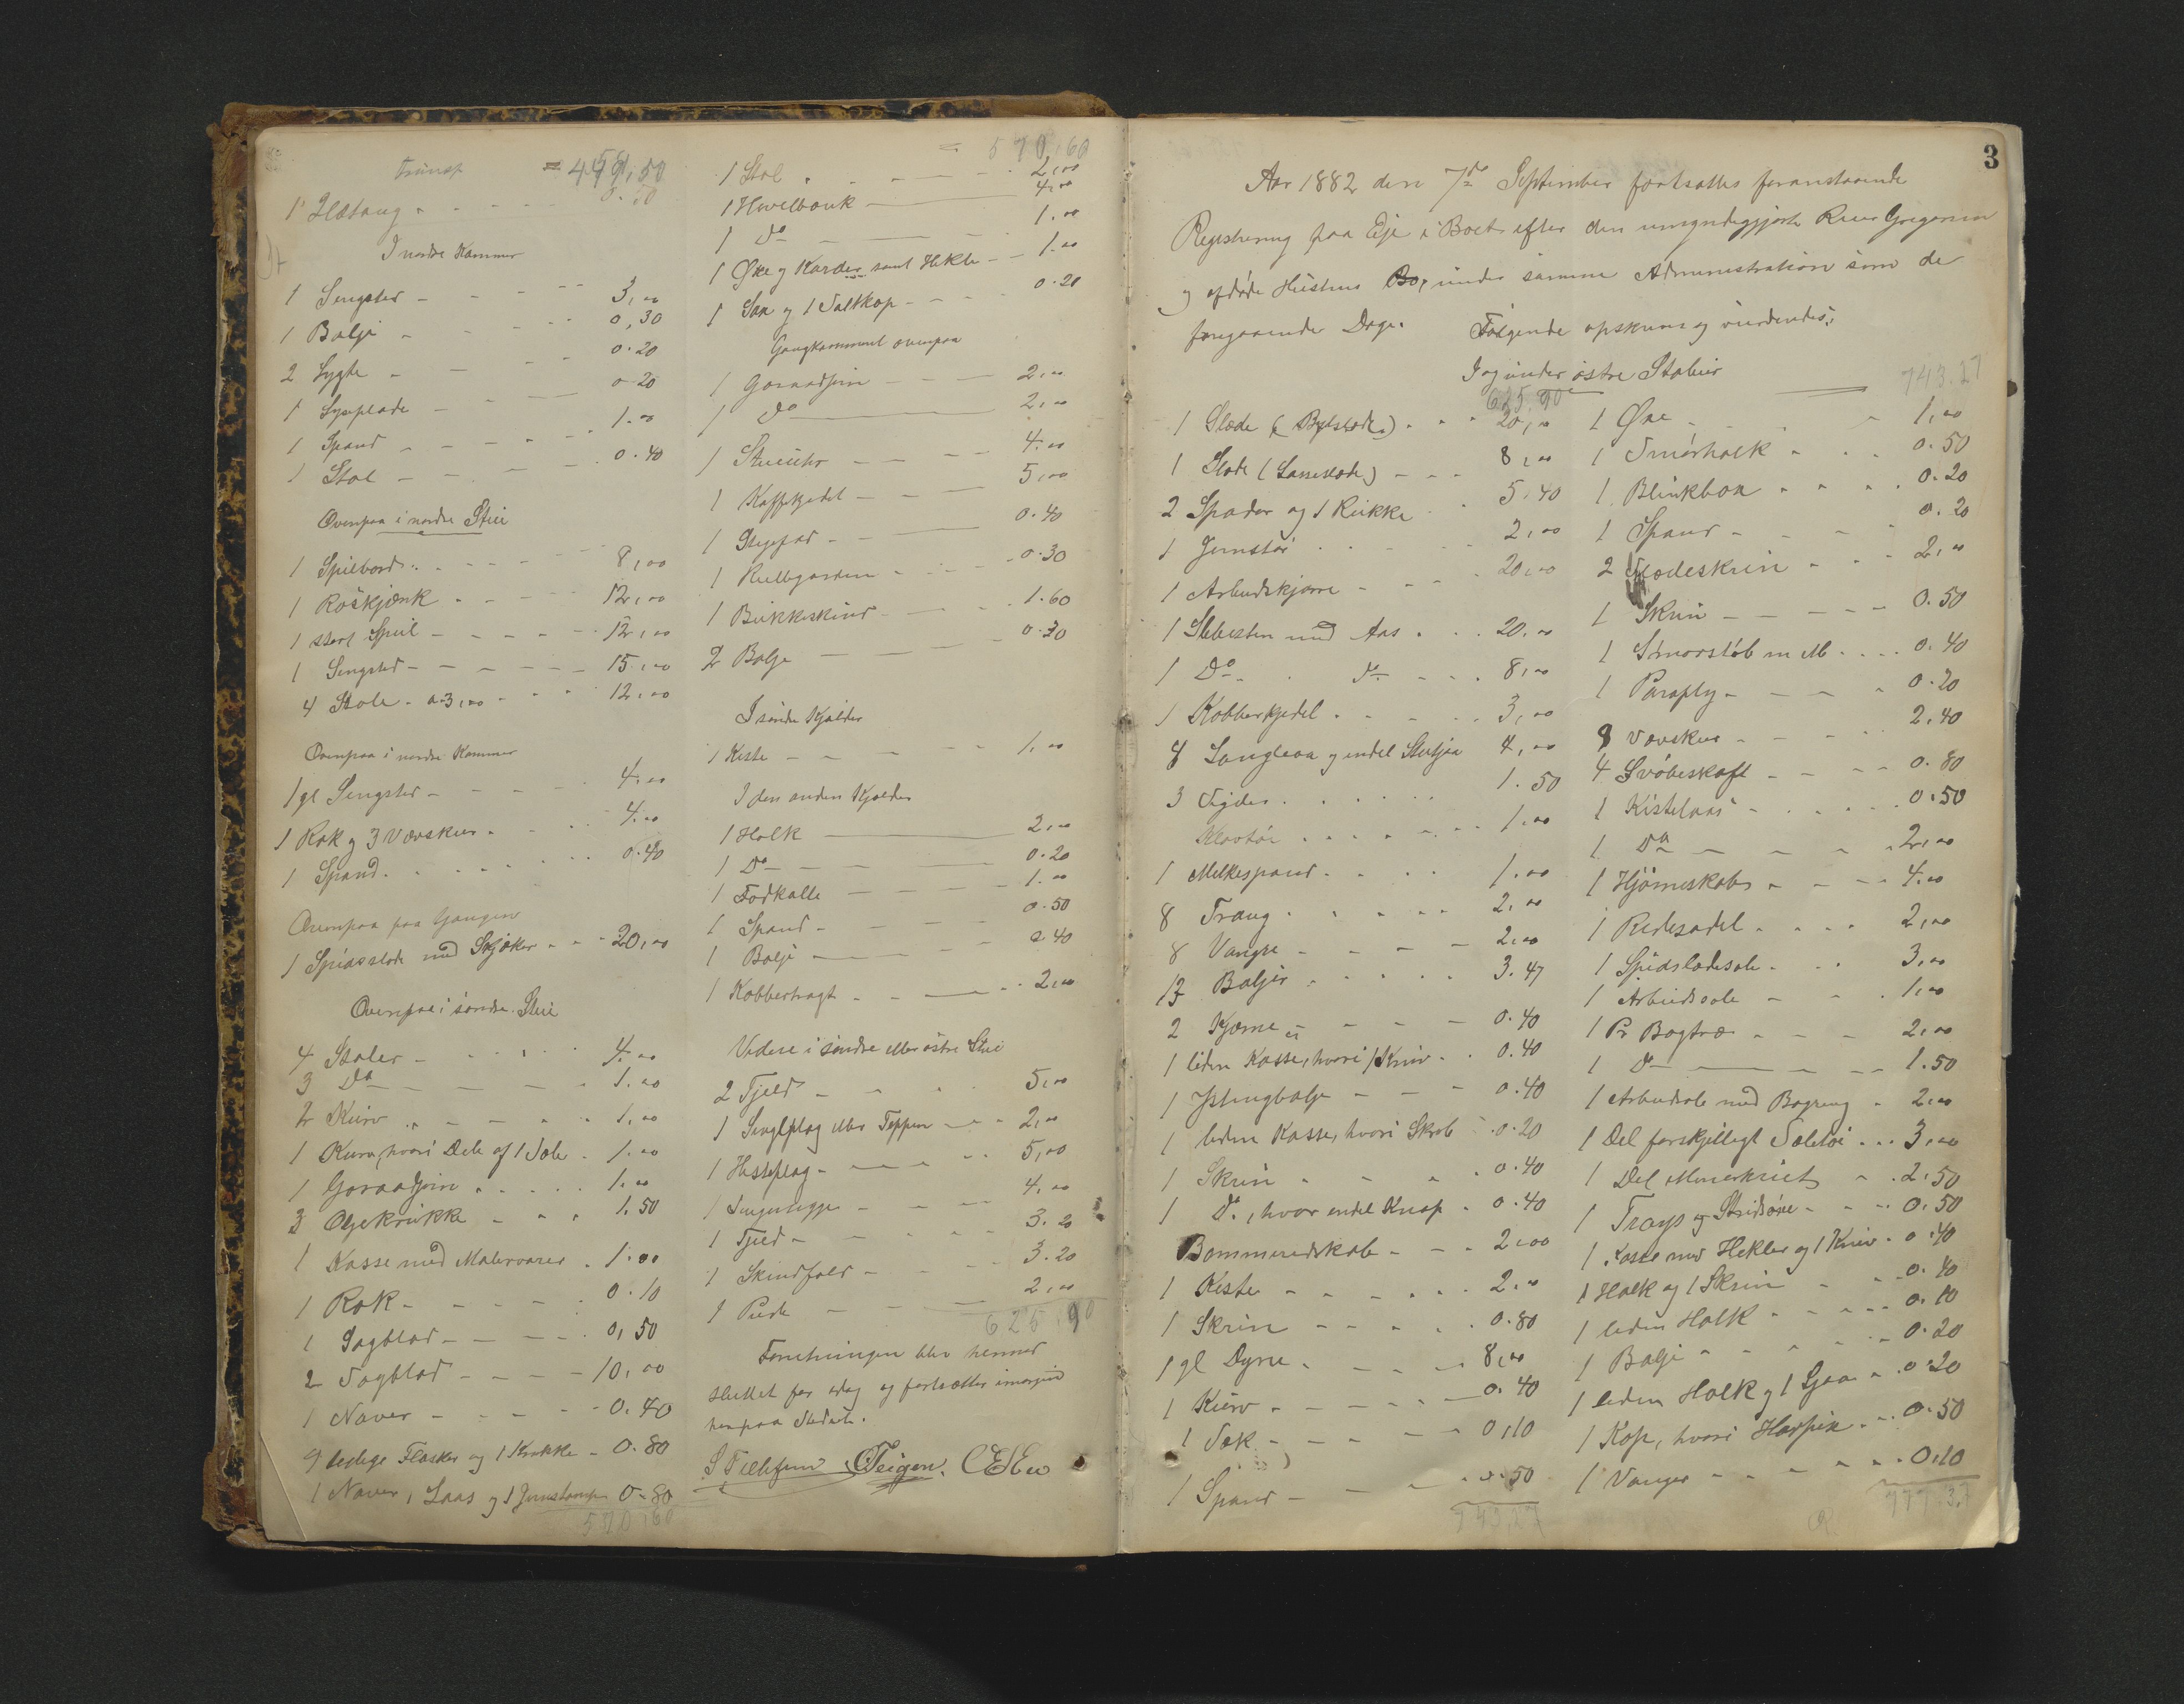 = 459,50
1 Ildtang - - - 0.50
I nordre Kammer
1 Sengsted - - - 3,00
1 Balje - - - 0,30
2 Lygte - - - 0.20
1 Lyseplade - - - 0.20
1 Spand - - - 1.00
1 Stol - - - 0.40
Ovenpaa i nordre Stue
1 Spilbord - - - 8,00
1 Roskjænk - - - 12,00
1 stort Speil - - - 12,00
1 Sengsted - - - 15,00
4 Stole - a 3,00 - - - 12,00
Ovenpaa i nordre Kammer
1 gl Sengsted - - - 4,00
1 Rok og 3 Vævskeer - 4.00
1 Spand - - - 0.40
Ovenpaa paa Gangen
1 Spidsslæde med Skjæker - - - 20,00
Ovenpaa i søndre Stue
4 Stoler - - - 4.00
3 Do - - - 1.00
2 Kurv - - - 1,00
1 Kurv, hvori Dele af 1 Sele - 1.00
1 Goraadjern - - - 1.00
3 Oljekrukke - - - 1.50
1 Kasse med Malervarer - 1.00
1 Rok - - - 0.10
1 Sagblad - - - 0,50
2 Sagblad - - - 10,00
1 Naver - - - 0.40
9 ledige Flasker og 1 Krukke - 0.80
1 Naver, 1 Laas og 1 Jernstampe 0.80
570,60
= 570,60
1 Stol - - - 2,00
1 Høvelbænk - 4,00
1 Do - - - 1.00
1 Øxe og Karder samt Hekle - - 1.00
1 Sax og 1 Saltkop - - - 0.20
Gangkammeret ovenpaa
1 Goraadjern - - - 2,00
1 Do - 2,00
1 Stueuhr - - - 4.00
1 Kaffekjedel - - - 5,00
1 Stegefad - - - 0.40
1 Rullegardin - - - 0.30
1 Bukkeskind - - - 1.60
2 Balje - - - 0.30
I søndre Kjælder
1 Kiste - - - 1,00
I den anden Kjælder
1 Holk - 2,00
1 Do - - - 0.20
1 Fodkalle - - - 1.00
1 Spand - - - 0.50
1 Balje - - - 0.40
1 Kobbertragt - - - 2,00
Videre i søndre eller østre Stue
2 Fjeld - - - 5,00
1 Sengeplag eller Teppen - - 2,00
1 Hesteplag - - - 5,00
1 Sengeteppe - - - 4,00
1 Fjeld - - - 3.20
1 Skindfeld - - - 3.20
1 Pude - - - 2,00
625,90
Forretningen blev hermed
sluttet for idag og fortsættes imorgen
her paa Stedet.
S Tellefsen Teigen.
3
Aar 1882 den 7de September fortsattes foranstaaende
Registrering paa Eje i Boet efter den umyndiggjorte Gregersen
og afdøde Hustrus Bo, under samme Administration som de
foregaaende Dage. Følgende opskreves og vurderedes:
I og under østre Stabur
625,90
1 Slæde - - - 20,00
1 Slæde (Lasseslæde) - - - 8,00
2 Spader og 1 Krukke - 5.40
1 Jernstør - - - 2,00
1 Arbeidskjærre - - - 20,00
1 Slibesten med Aas - - - 20.00
1 Do - do - - - 8,00
1 Kobberkjedel - - - 3,00
8 Langleaa og endel Stutljaa 4,00
3 Sigder - - - 1.50
Kløvtøi - - - 1.00
1 Melkespand - - - 1.00
8 Traug - - - 2,00
8 Vanger - - - 2.00
13 Baljer - - - 3.47
2 Kjærne - - - 0.40
1 liden Kasse, hvori 1 Kniv - 0.40
1 Ystingbalje - - - 0.40
1 liden Kasse, hvori Skrab - 0.20
1 Skrin - - - 0.40
1 Do, hvor endel Knap - 0.40
Bommeredskab - - - 2.00
1 Kiste - - - 2.00
1 Skrin - - - 0.80
1 gl Dyne - - - 8,00
1 Kurv - - - 0.40
1 Sæk - - - 0,10
1 Spand - - - 0.50
743,27
743.27
1 Øxe - - - 1,00
1 Smørholk - - - 0.50
1 Blinkbox - - - 0.20
1 Spand - - - 0.20
2 Flødeskrin - - - 2,00
1 Skrin - - - 0.50
1 Smørstøb m M - - - 0.40
1 Paraply - - - 0.20
8 Vævskee - - - 2.40
4 Svøbeskaft - - - 0.80
1 Kistelaas - - - 0.50
1 Do - - - 2,00
1 Hjørneskab - - - 4.00
1 Ridesadel - - - 2,00
1 Spidslædesele - - - 3,00
1 Arbeidssele - - - 1,00
1 Pr Bogtræ - - - 2,00
1 Do - - - 1.50
1 Arbeidsele med Bogreng - 2.00
1 Del forskjelligt Seletøi - - - 3,00
1 Del - 2,50
1 Traug og - - - 0.50
1 Kasse med Hekler og 1 Kniv - 0.40
1 Holk og 1 Skrin - - - 0.40
1 liden Holk - - - 0.10
1 Balje - - - 0.20
1 liden Holk og 1 Ljaa - 0.20
1 Kop, hvori Harpix - - 0.50
1 Vanger - - - 0,10
777,37